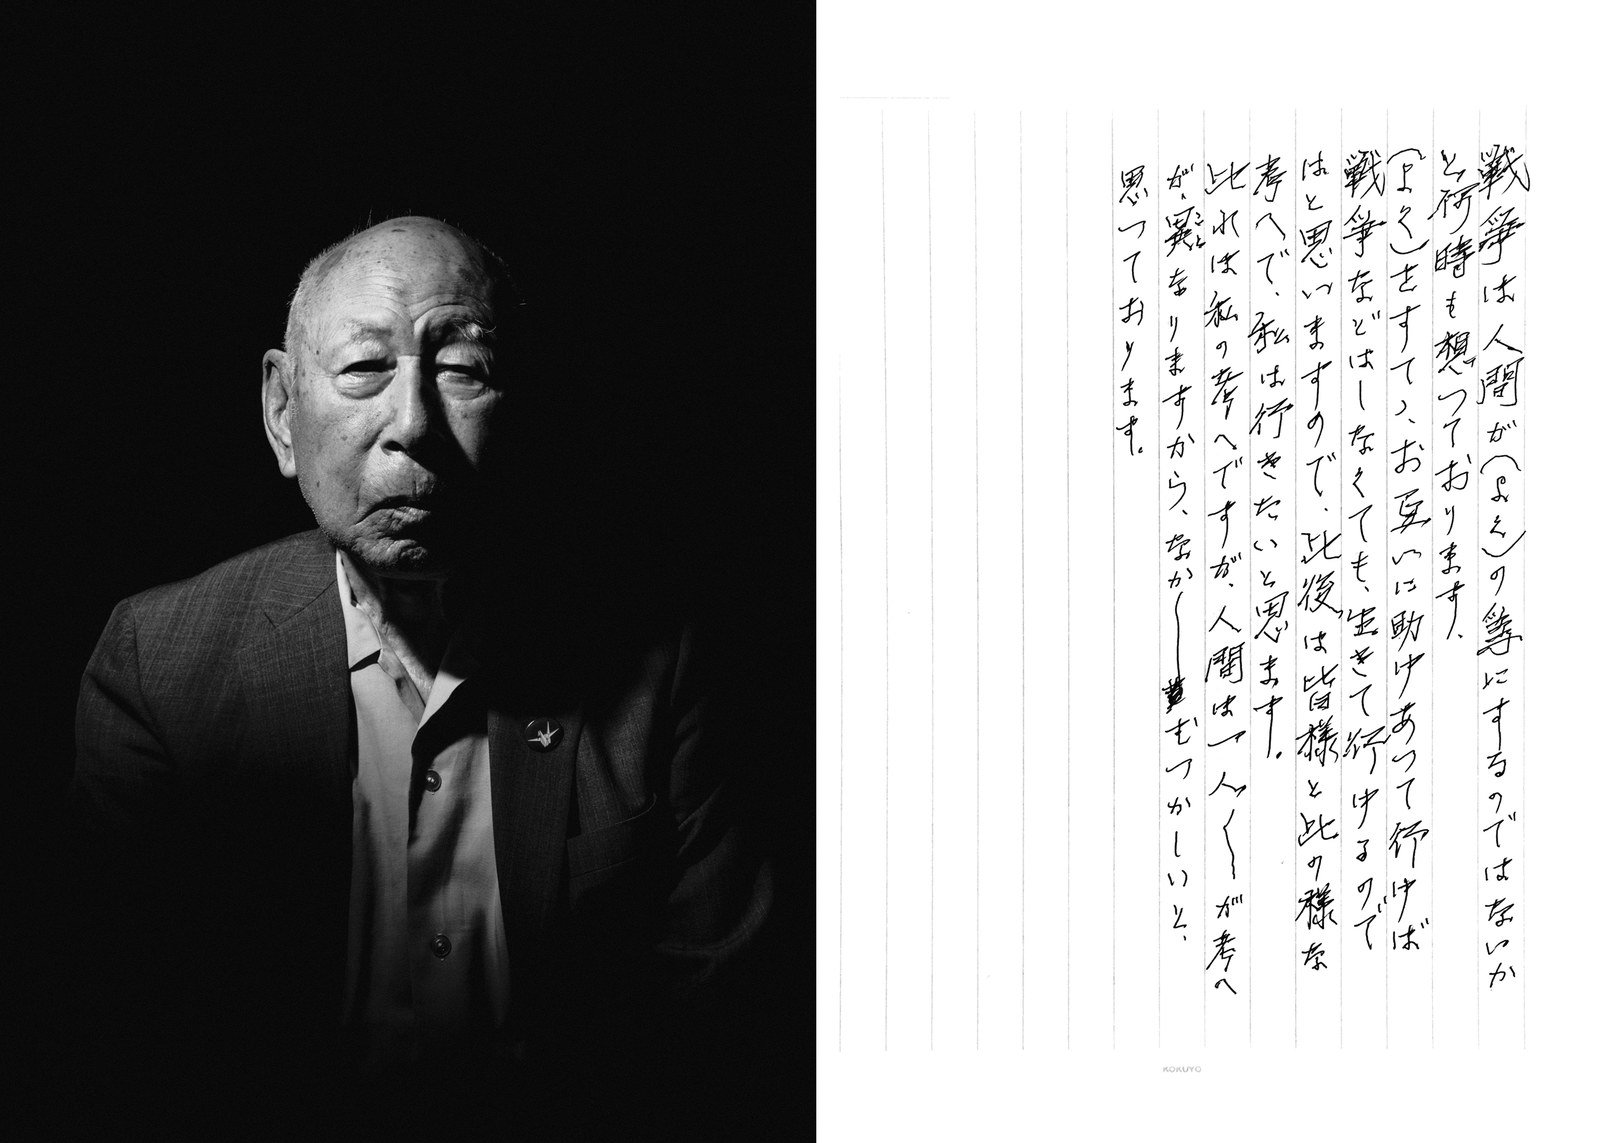 戦争は人間が(よく)の為にするのではないか
と何時も想つております、
(よく)をすてゝ、お互いに助けあつて行けば
戦争などはしなくても、生きて行けるので
はと思いますので、此後は皆様と此の様な
考へで、私は行きたいと思ます。
此れは私の考へですが、人間は一人〳〵が考へ
が、異なりますから、なか〳〵むつかしいと、
思つております。
KOKUYO